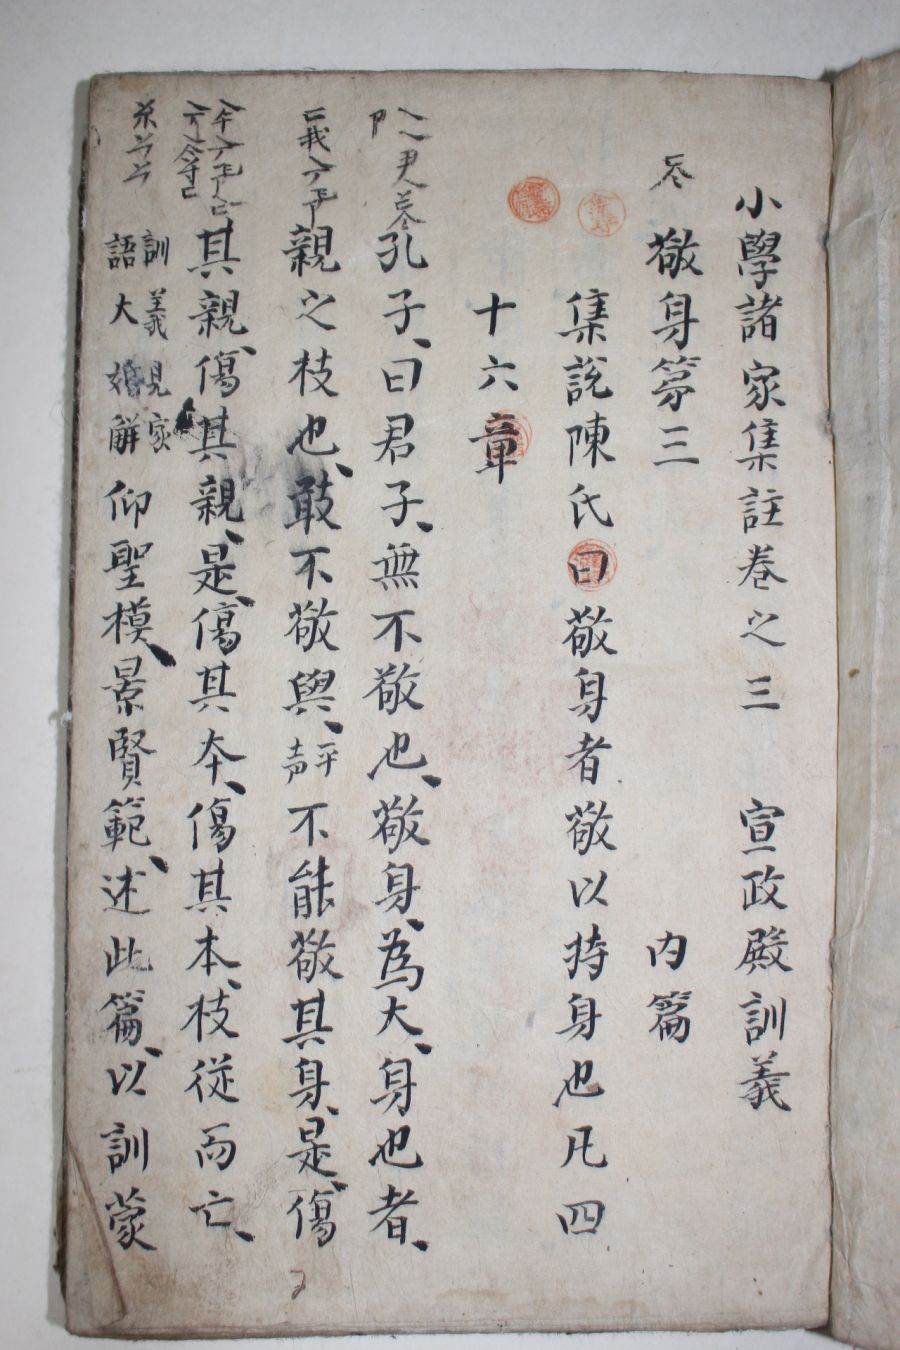 小學諸家集註卷之三 宣政殿訓義
敬身第三 內篇
集說陳氏曰敬身者敬以持身也凡四
十六章
孔子、曰君子、無不敬也、敬身、爲大、身也者、
親之枝也、敢不敬與、平聲不能敬其身、是、傷
其親、傷其親、是、傷其本、傷其本、枝從而亡、
訓義見家語大婚解仰聖模、景賢範、述此篇、以訓蒙